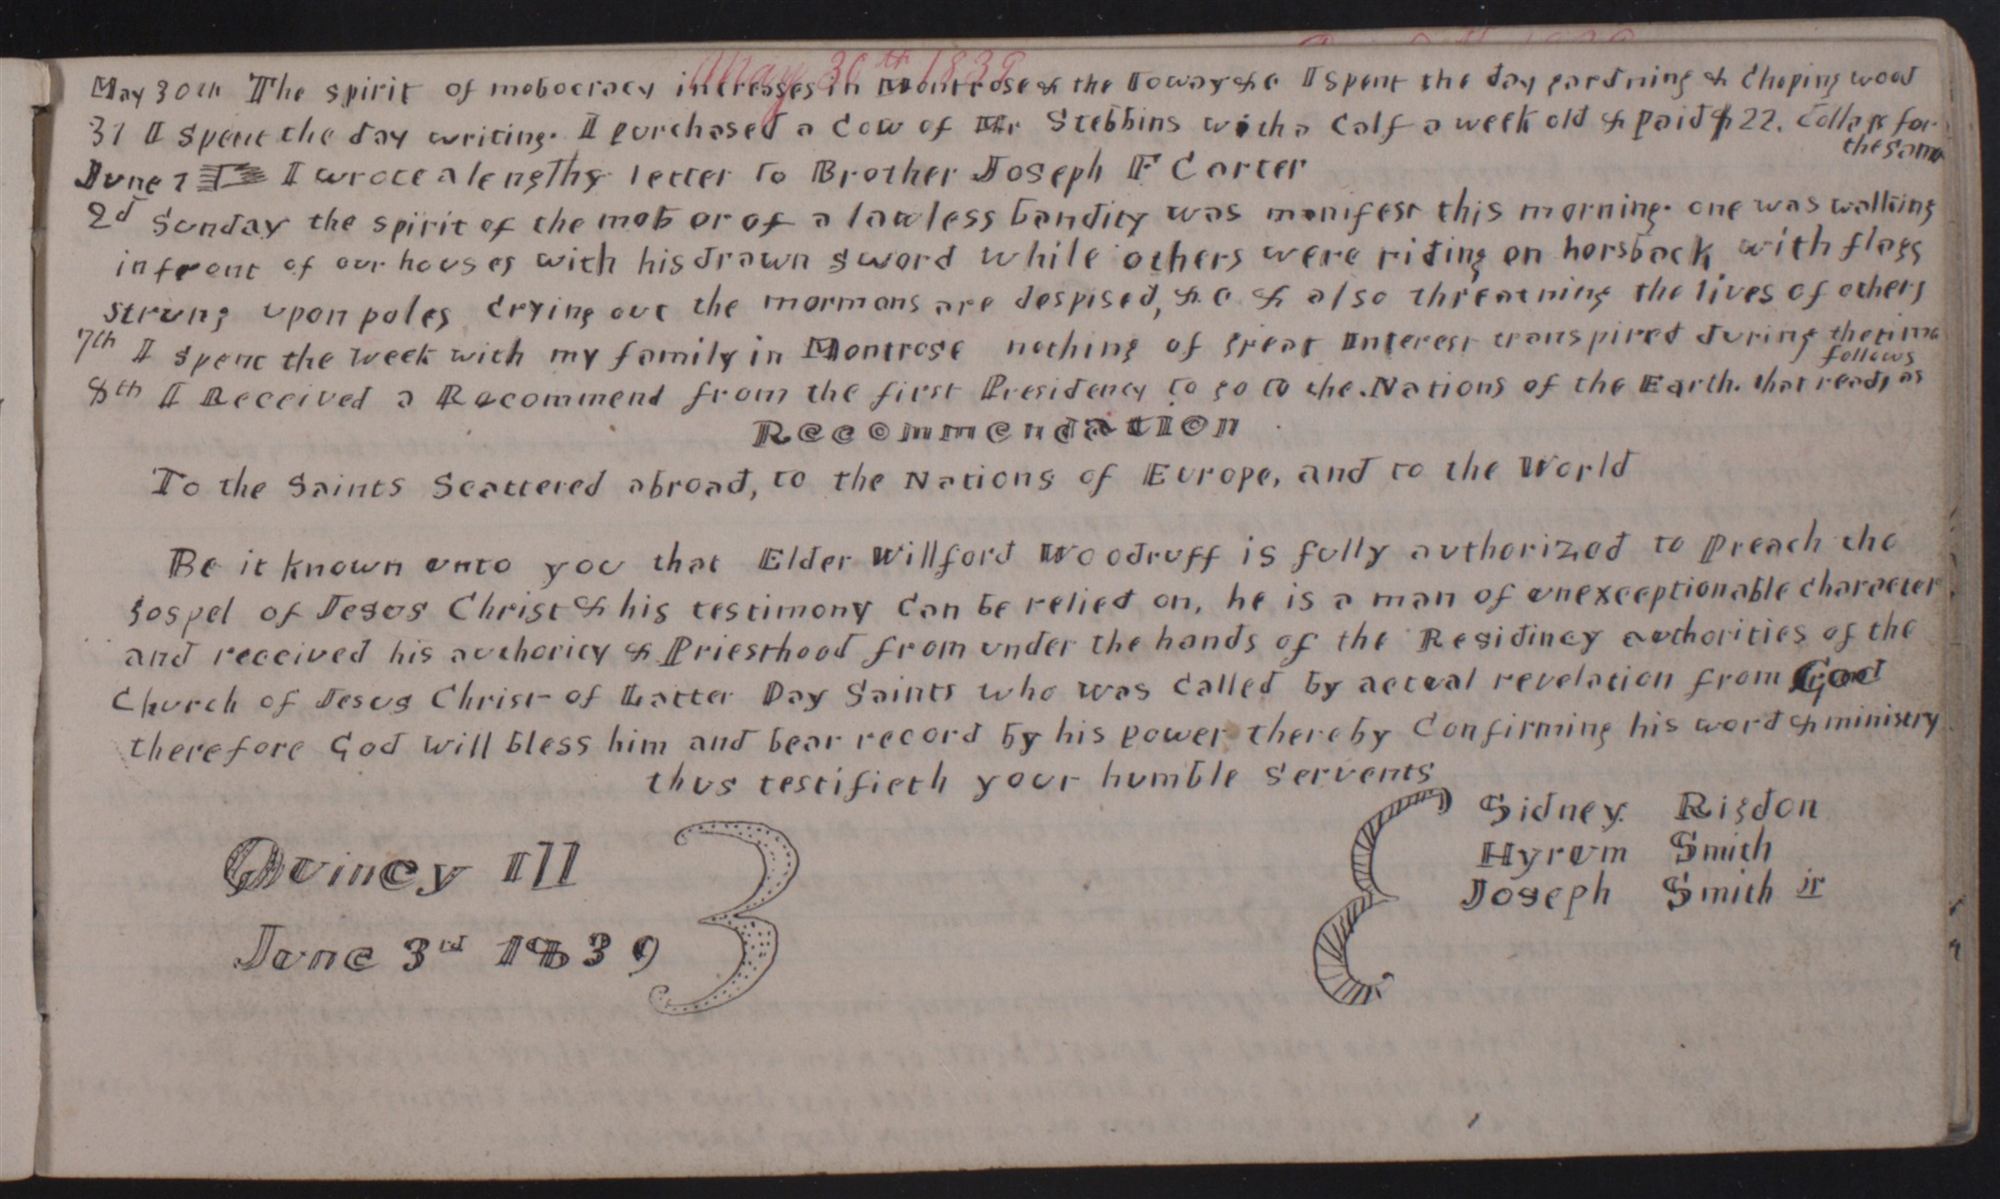 May 30th 1839
May 30th The spirit of mobocracy increases in Montrose & the Ioway &c I spent the day gardning & Choping wood
31 I spent the day writing. I purchased a Cow of Mr Stebbins with a Calf a week old & paid $22. Dollars for
the same
June 1 I wrote a lengthy letter to Brother Joseph F Carter
2d Sunday the spirit of the mob or of a lawless bandity was manifest this morning. one was walking
in front of our houses with his drawn sword while others were riding on horsback with flags
strung upon poles crying out the mormons are despised, &c & also threatning the lives of others
7th I spent the week with my family in Montrose nothing of great Interest transpired during the time
follows
8th I Received a Recommend from the first Presidency to go to the Nations of the Earth. that reads as
Recommendation
To the Saints Scattered abroad, to the Nations of Europe, and to the World
Be it known unto you that Elder Willford Woodruff is fully authorized to Preach the
gospel of Jesus Christ & his testimony Can be relied on, he is a man of unexceptionable character
and received his authority & Priesthood from under the hands of the Residincy authorities of the
Church of Jesus Christ of Latter Day Saints who was Called by actual revelation from God
therefore God will bless him and bear record by his power thereby Confirming his word & ministry
thus testifieth your humble Servents
Sidney Rigdon
Hyrum Smith
Joseph Smith jr
Quincy Ill
June 3rd 1839